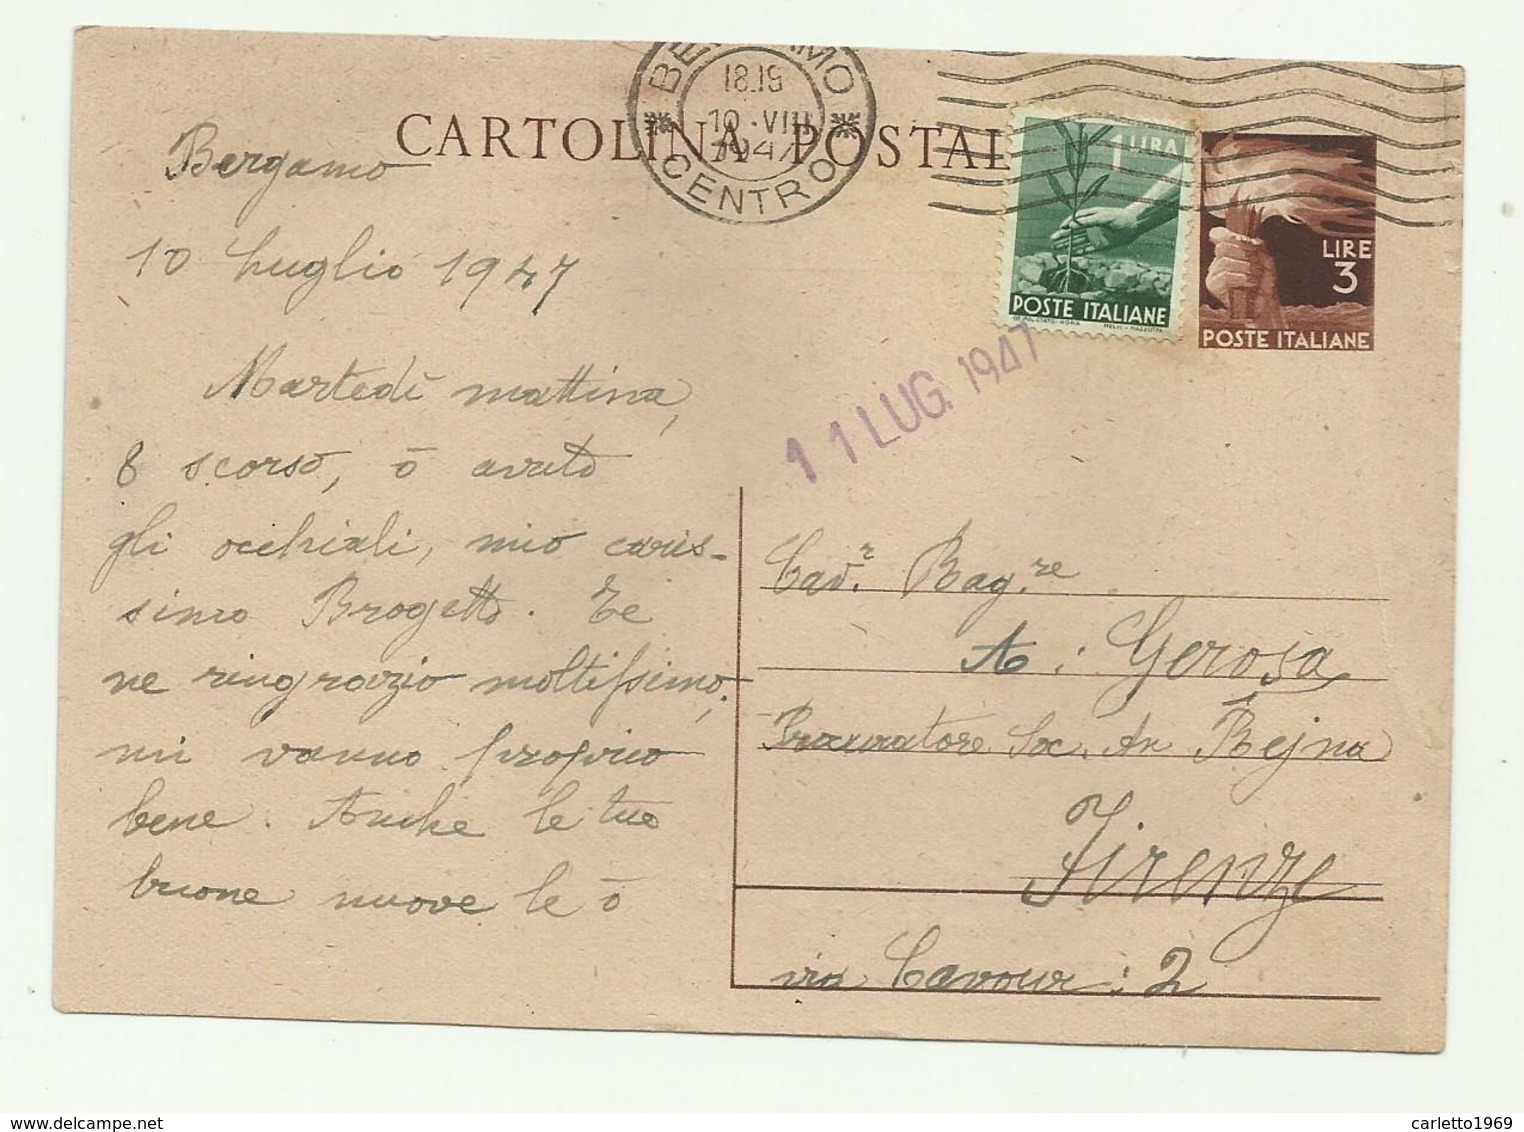 CARTOLINA POSTALE
BERGAMO
18.19
10·VII
1947
CENTRO
1 LIRA
POSTE ITALIANE
LIRE
3
POSTE ITALIANE
11 LUG. 1947
Bergamo
10 Luglio 1947
Martedì mattina,
8 scorso, ō avuto
gli occhiali, mio caris-
simo Brogetto. Te
ne ringrazio moltissimo,
mi vanno proprio
bene. Anche le tue
buone nuove le ō
Cav.r Rag.re
A: Gerosa
Procuratore Soc. An
Firenze
via Cavour: 2
delcampe.net
carletto1969